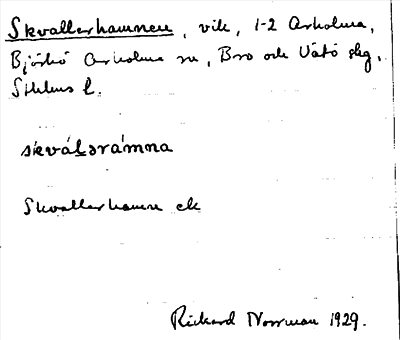 Skvallerhamnen, vik, 1-2 Arholma,
Björkö Arholma sn, Bro och Vätö skg,
Sthlms l.
skvál̲ərámna
Skvallerhamn ek
Rickard Norrman 1929.